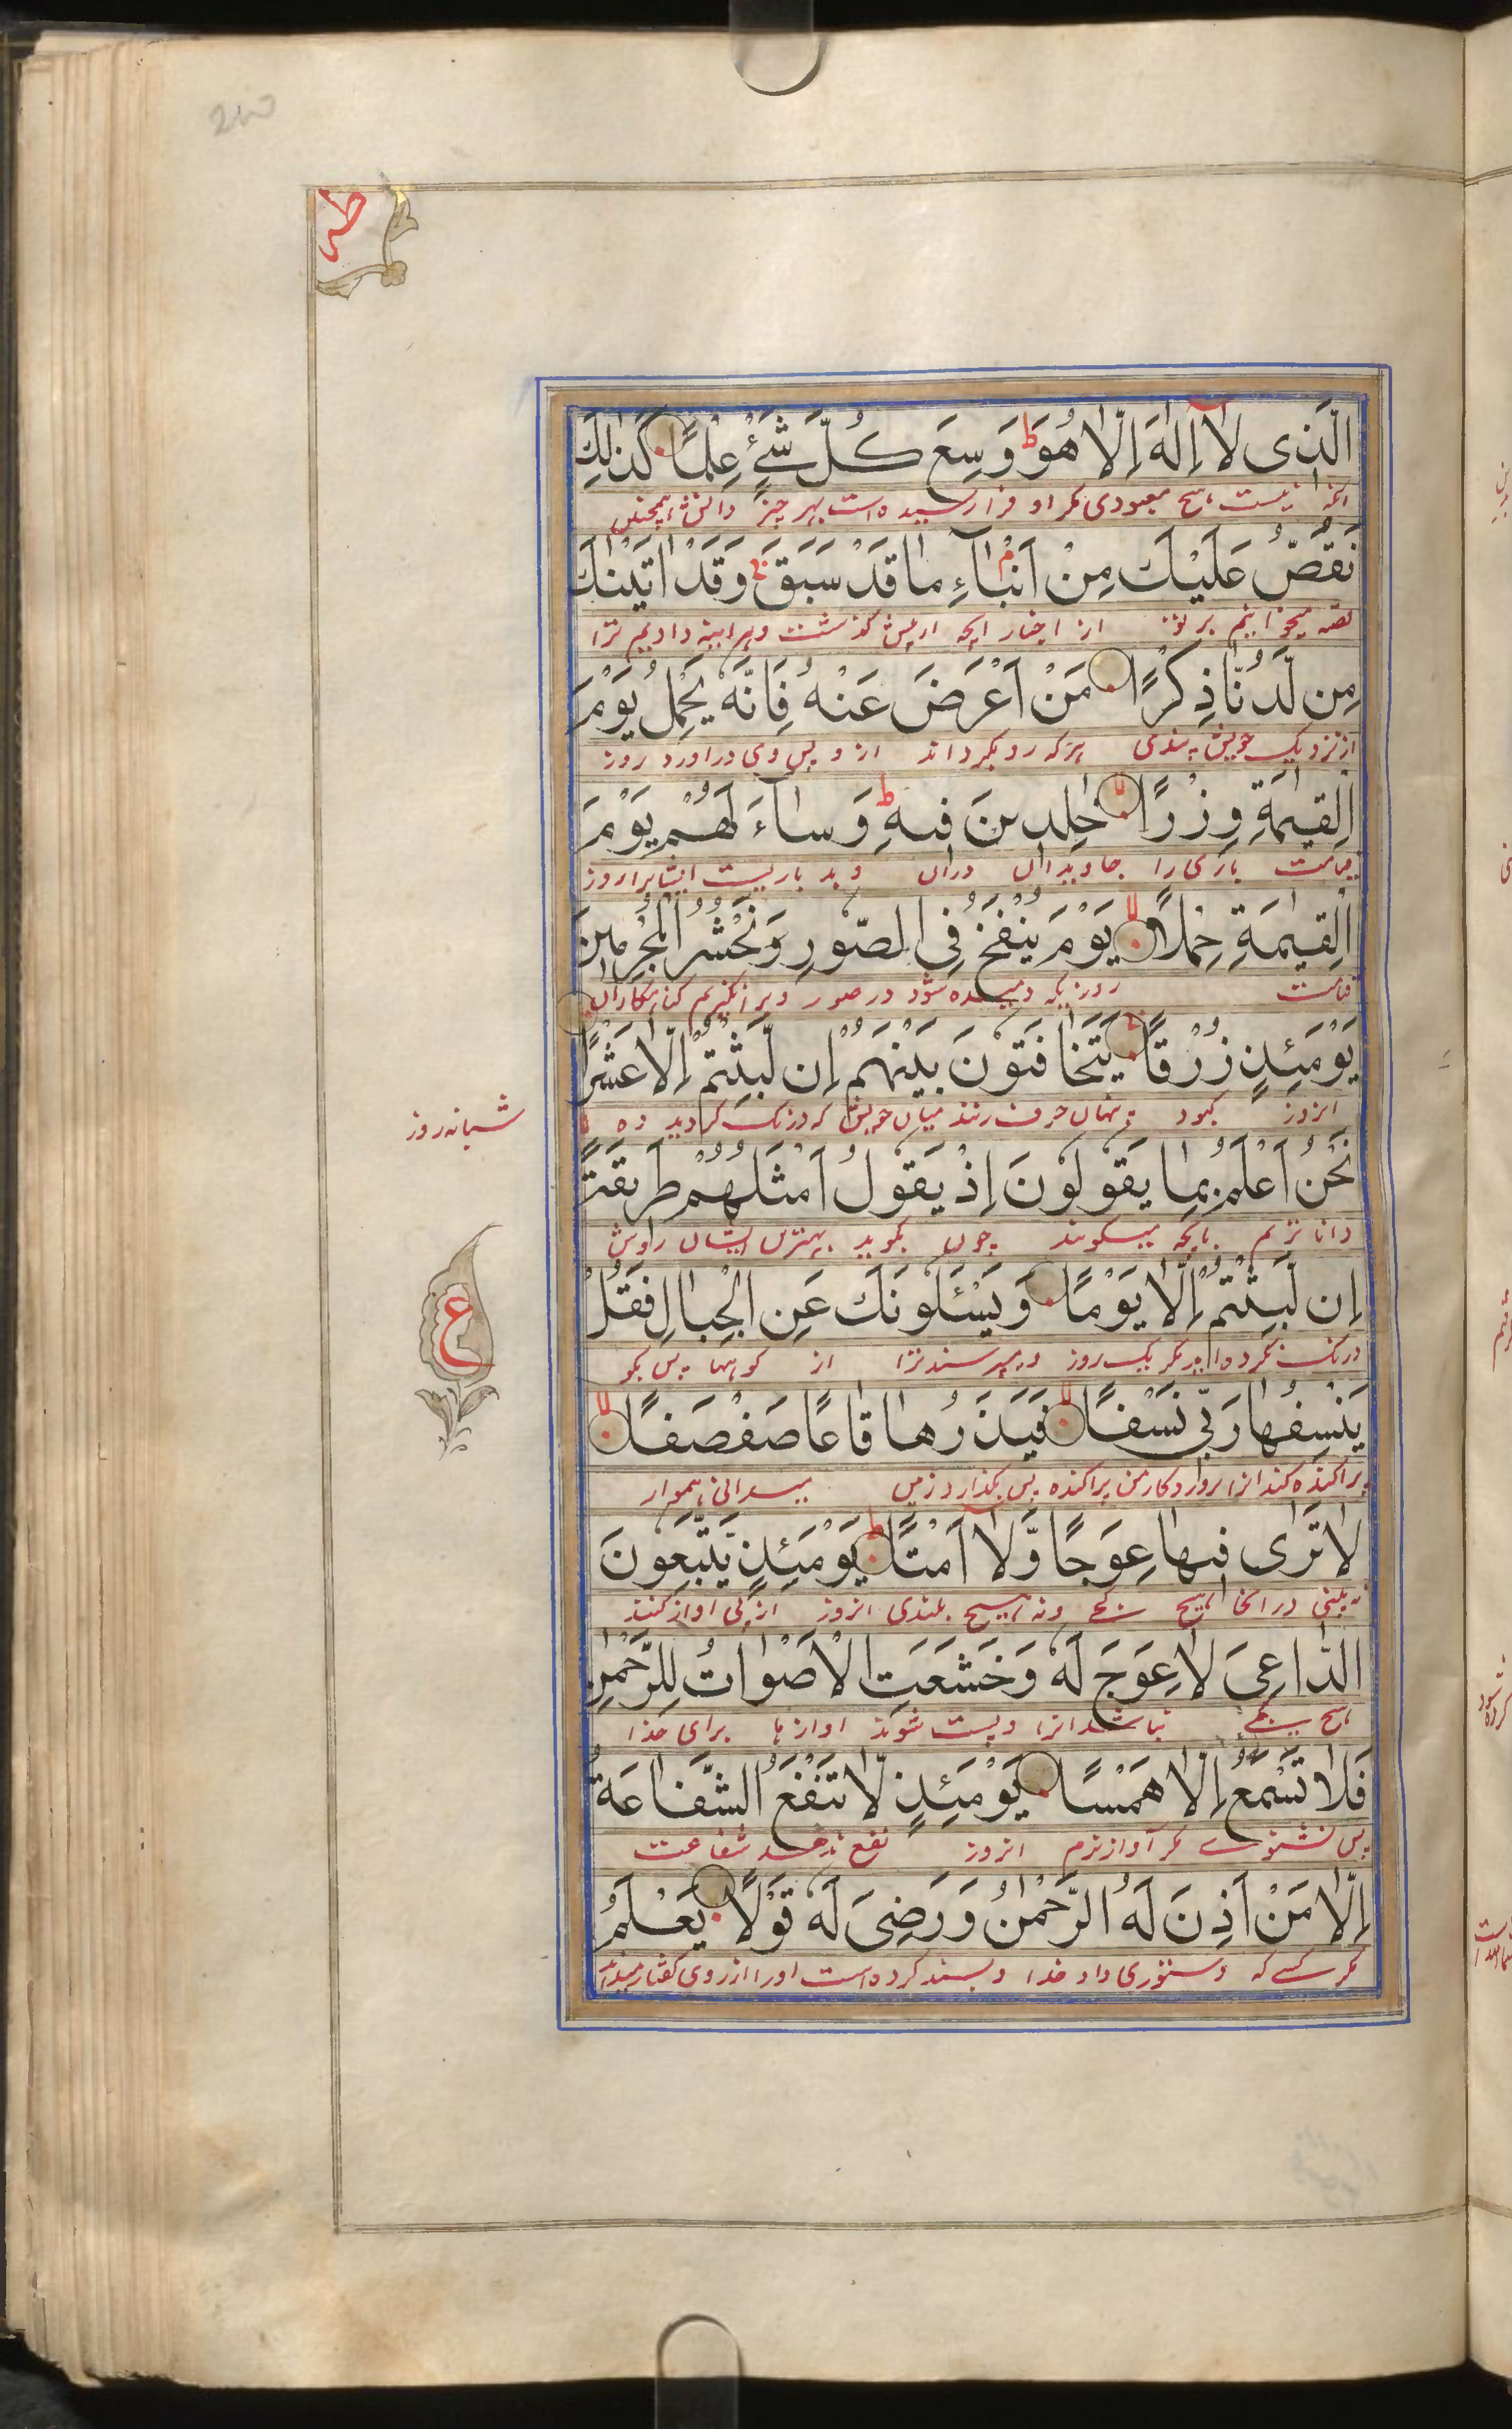 طه
الَّذِى لَا اِلٰهَ اِلَّا هُوَ ط وَسِعَ كُلَّ شَىْءٍ عِلْمًا كَذٰلِكَ
انکه نیست هیچ معبودی مکر او فرا رسیده است بهر چیز دانش همچنین
نَقُصُّ عَلَيْكَ مِنْ اَنْۢبَآءِ مَا قَدْ سَبَقَ ج وَقَدْ اٰتَيْنٰكَ
قصه میخوانیم بر تو از اخبار انچه از پیش کذشت وهراینه دادیم ترا
مِن لَّدُنَّا ذِكْرًا مَنْ اَعْرَضَ عَنْهُ فَاِنَّهٗ يَحْمِلُ يَوْمَ
از نزدیک خویش پندی هرکه رو بکرداند از و پس وی دراورد روز
الْقِيٰمَةِ وِزْرًا لا خٰلِدِينَ فِيهِ ط وَسَآءَ لَهُمْ يَوْمَ
قیامت باری را جاویدان دران وبد باریست ایشانرا روز
الْقِيٰمَةِ حِمْلًا لا يَوْمَ يُنْفَخُ فِى الصُّورِ وَنَحْشُرُ الْمُجْرِمِينَ
قیامت روزیکه دمیده شود در صور وبرانکیزیم کناهکاران
يَوْمَئِذٍ زُرْقًا يَتَخَافَتُونَ بَيْنَهُمْ اِن لَّبِثْتُمْ اِلَّا عَشْرًا
انروز کبود پنهان حرف زنند میان خویش که درنک کردید ده
شبانه روز
نَحْنُ اَعْلَمُ بِمَا يَقُولُونَ اِذْ يَقُولُ اَمْثَلُهُمْ طَرِيقَةً
دانا تریم بانچه میکویند چون بکوید بهترین ایشان راوش
اِن لَّبِثْتُمْ اِلَّا يَوْمًا وَيَسْئَلُونَكَ عَنِ الْجِبَالِ فَقُلْ
درنک نکرده اید مکر یک روز ومیپرسند ترا از کوهها پس بکو
ع
يَنْسِفُهَا رَبِّى نَسْفًا لا فَيَذَرُهَا قَاعًا صَفْصَفًا لا
پراکنده کند انرا پروردکار من پراکنده پس بکذارد زمین میدانی هموار
لَا تَرٰى فِيهَا عِوَجًا وَّلَا اَمْتًا ط يَوْمَئِذٍ يَّتَّبِعُونَ
نه بینی درانجا هیچ کجی ونه هیچ بلندی انروز از پی اواز کنند
الدَّاعِىَ لَا عِوَجَ لَهٗ وَخَشَعَتِ الْاَصْوَاتُ لِلرَّحْمٰنِ
هیچ کجی نباشد انرا وپست شوند اوازها برای خدا
فَلَا تَسْمَعُ اِلَّا هَمْسًا يَوْمَئِذٍ لَّا تَنْفَعُ الشَّفَاعَةُ
پس نشنوی مکر آواز نرم انروز نفع ندهد شفاعت
اِلَّا مَنْ اَذِنَ لَهُ الرَّحْمٰنُ وَرَضِىَ لَهٗ قَوْلًا يَعْلَمُ
مکر کسی که دستوری داد خدا وپسند کرده است اورا از روی کفتار میداند